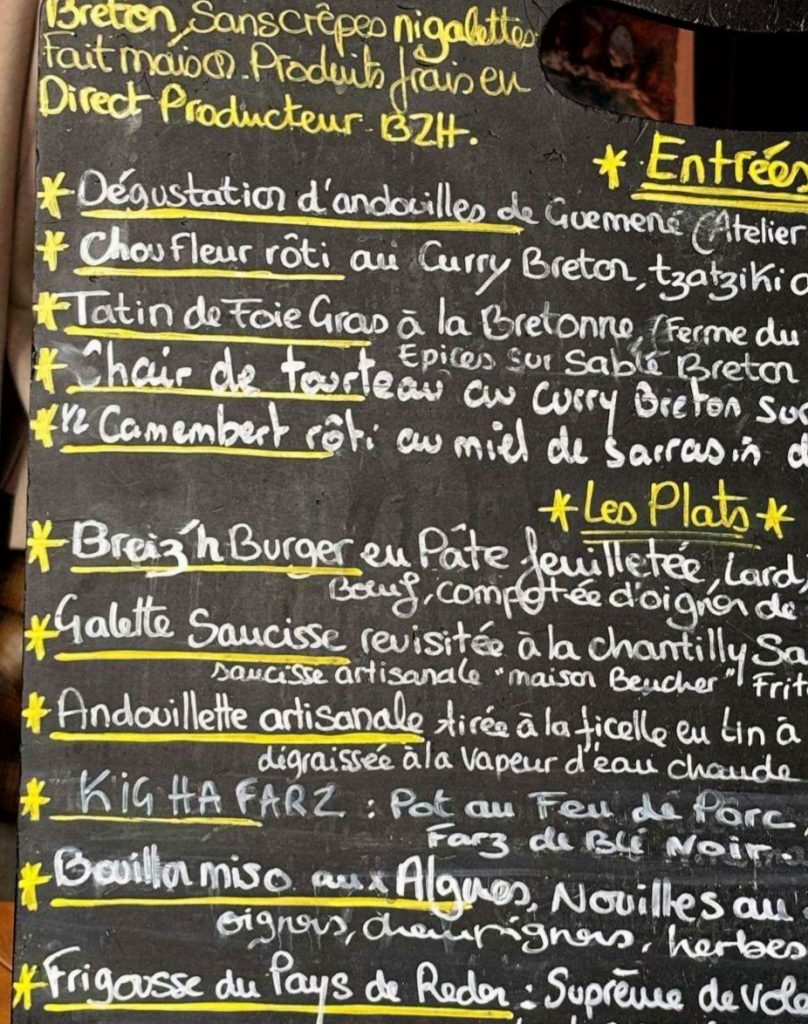 Breton, Sans crêpes ni galettes
Fait maison. Produits frais en
Direct Producteur BZH.
* Entrées
* Dégustation d'andouilles de Guemené (Atelier
* Chou fleur rôti au Curry Breton, tzatziki
* Tatin de Foie Gras à la Bretonne, (Ferme du
Epices sur Sablé Breton
* Chair de tourteau au Curry Breton Su
* 1/2 Camembert rôti au miel de sarrasin d
* Les Plats *
* Breiz'h Burger en Pâte feuilletée, Lard,
Boeuf, compotée d'oignon de
* Galette Saucisse revisitée à la chantilly Sa
saucisse artisanale "maison Beucher" Frit
* Andouillette artisanale tirée à la ficelle en Lin à
dégraissée à la vapeur d'eau chaude
* KIG HA FARZ : Pot au Feu de Porc
Farz de Blé Noir.
* Bouillon miso aux Algues, Nouilles au
oignons, champignons, herbes
* Frigousse du Pays de Redon : Suprême de Vola